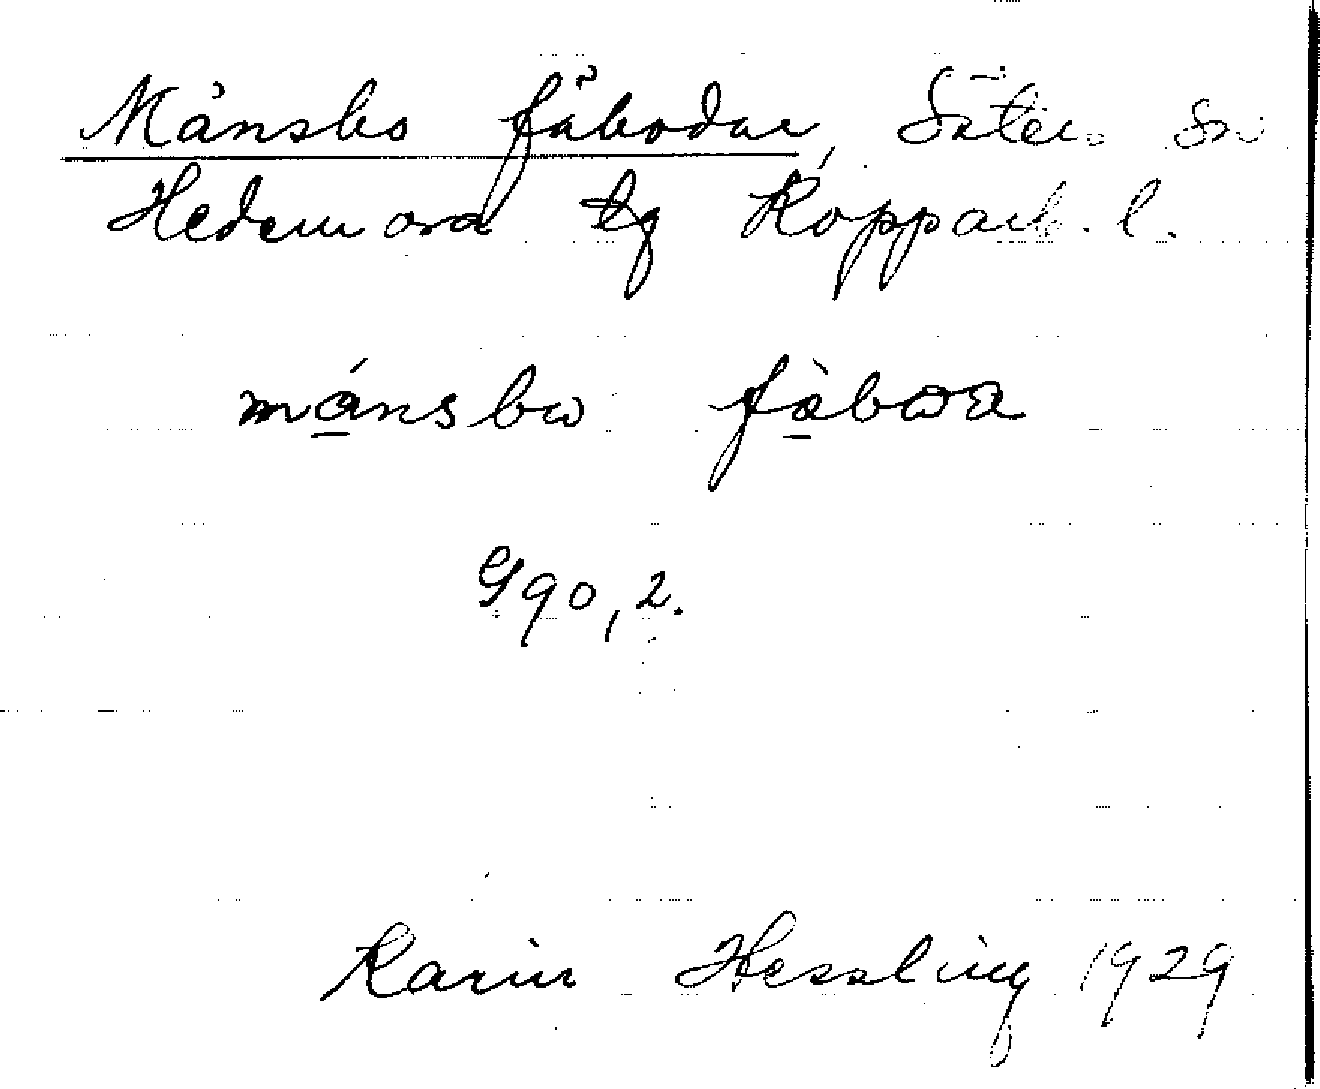 Månsbo fäbodar, Säters sn
Hedemora tg Kopparb. l.
månsbω fäbωa
G90,2.
Karin Hessling 1929